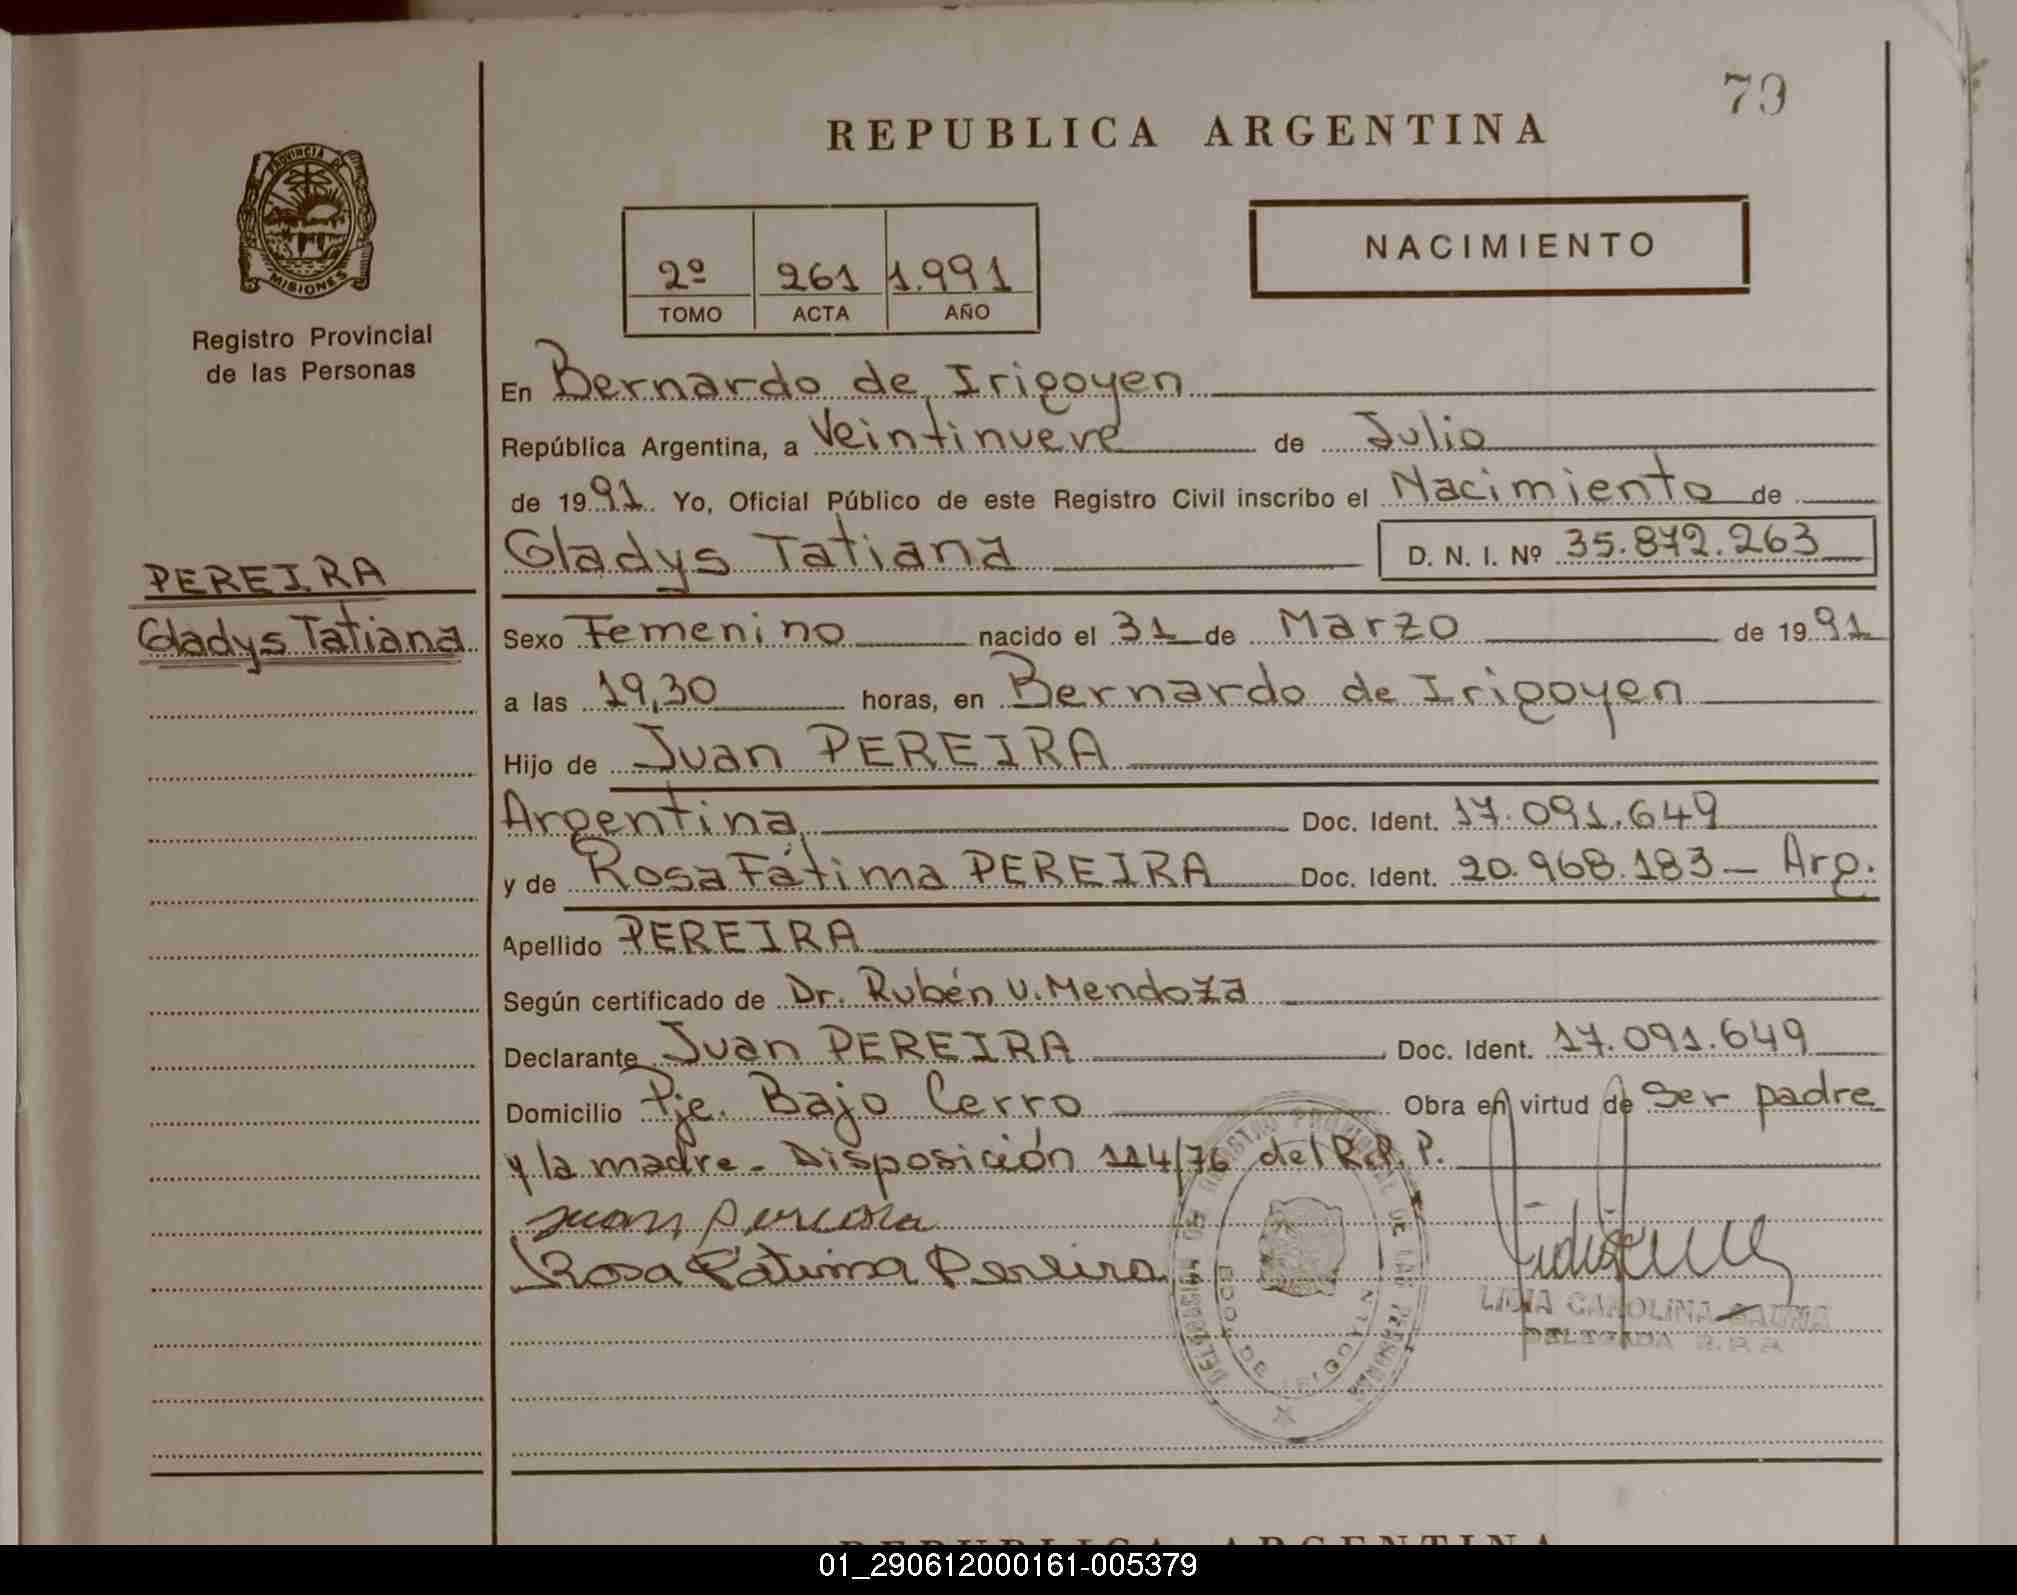 79
REPUBLICA ARGENTINA
PROVINCIA DE MISIONES
Registro Provincial
de las Personas
2º 261 1.991
TOMO ACTA AÑO
NACIMIENTO
En Bernardo de Irigoyen
República Argentina, a Veintinueve de Julio
de 1991 Yo, Oficial Público de este Registro Civil inscribo el Nacimiento de
Gladys Tatiana D. N. I. Nº 35.872.263
PEREIRA
Gladys Tatiana
Sexo Femenino nacido el 31 de Marzo de 1991
a las 19,30 horas, en Bernardo de Irigoyen
Hijo de Juan PEREIRA
Argentina Doc. Ident. 17.091.649
y de Rosa Fátima PEREIRA Doc. Ident. 20.968.183 - Arg.
Apellido PEREIRA
Según certificado de Dr. Rubén U. Mendoza
Declarante Juan PEREIRA Doc. Ident. 17.091.649
Domicilio Pje. Bajo Cerro Obra en virtud de Ser padre
y la madre - Disposición 114/76 del R.P.P.
Juan Pereira
Rosa Fátima Pereira
CAROLINA
DELEGADA
REPUBLICA ARGENTINA
01_290612000161-005379